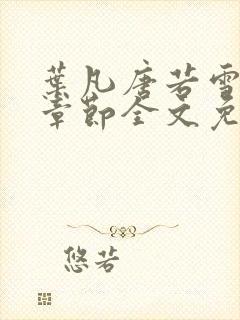 葉凡唐若雪
章節全文免
悠若